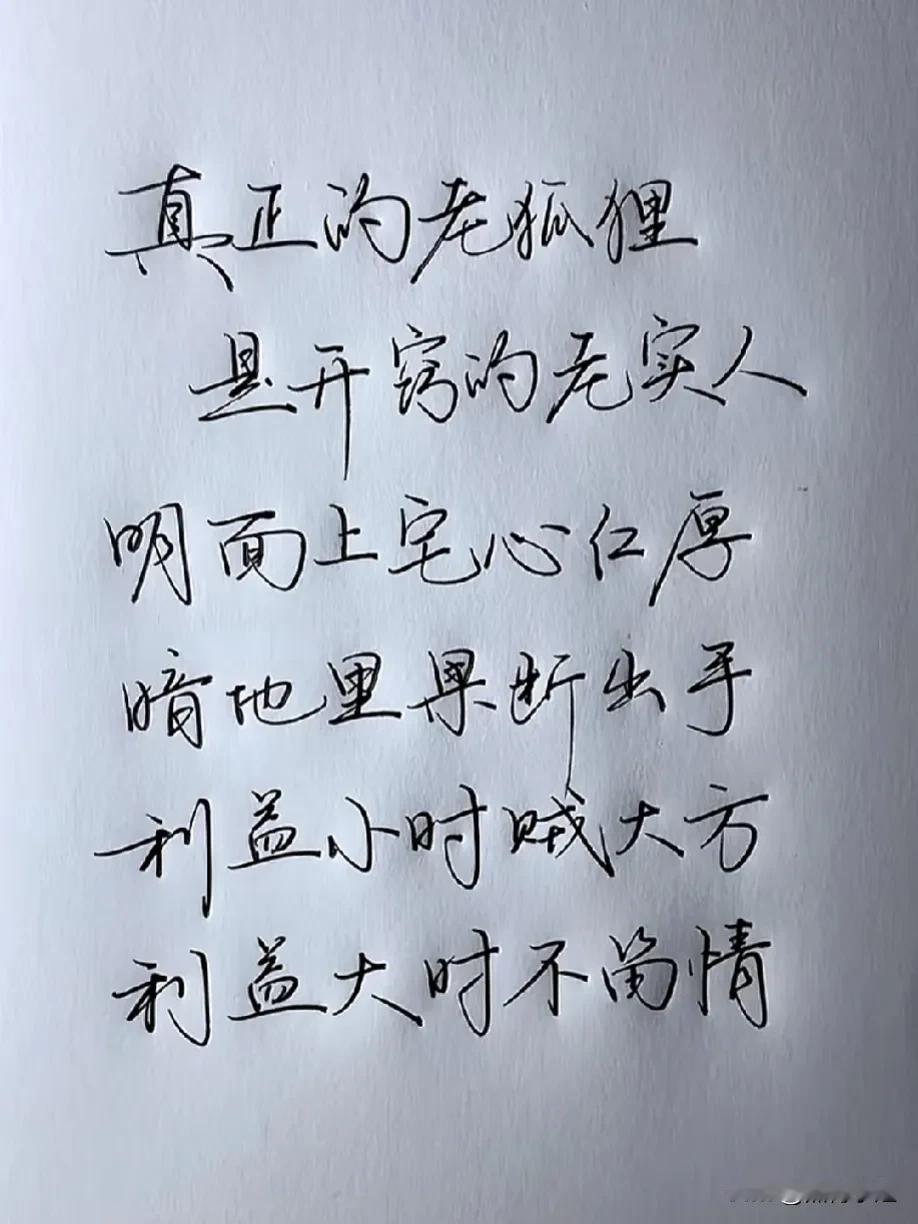 真正的老狐狸
是开窍的老实人
明面上宅心仁厚
暗地里果断出手
利益小时贼大方
利益大时不留情